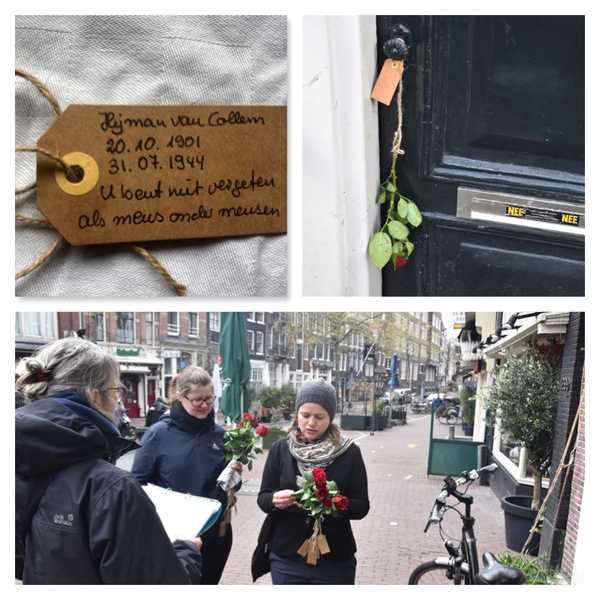 Hijman van Collem
20.10.1901
31.07.1944
U bent niet vergeten
als mens onder mensen
NEE
NEE